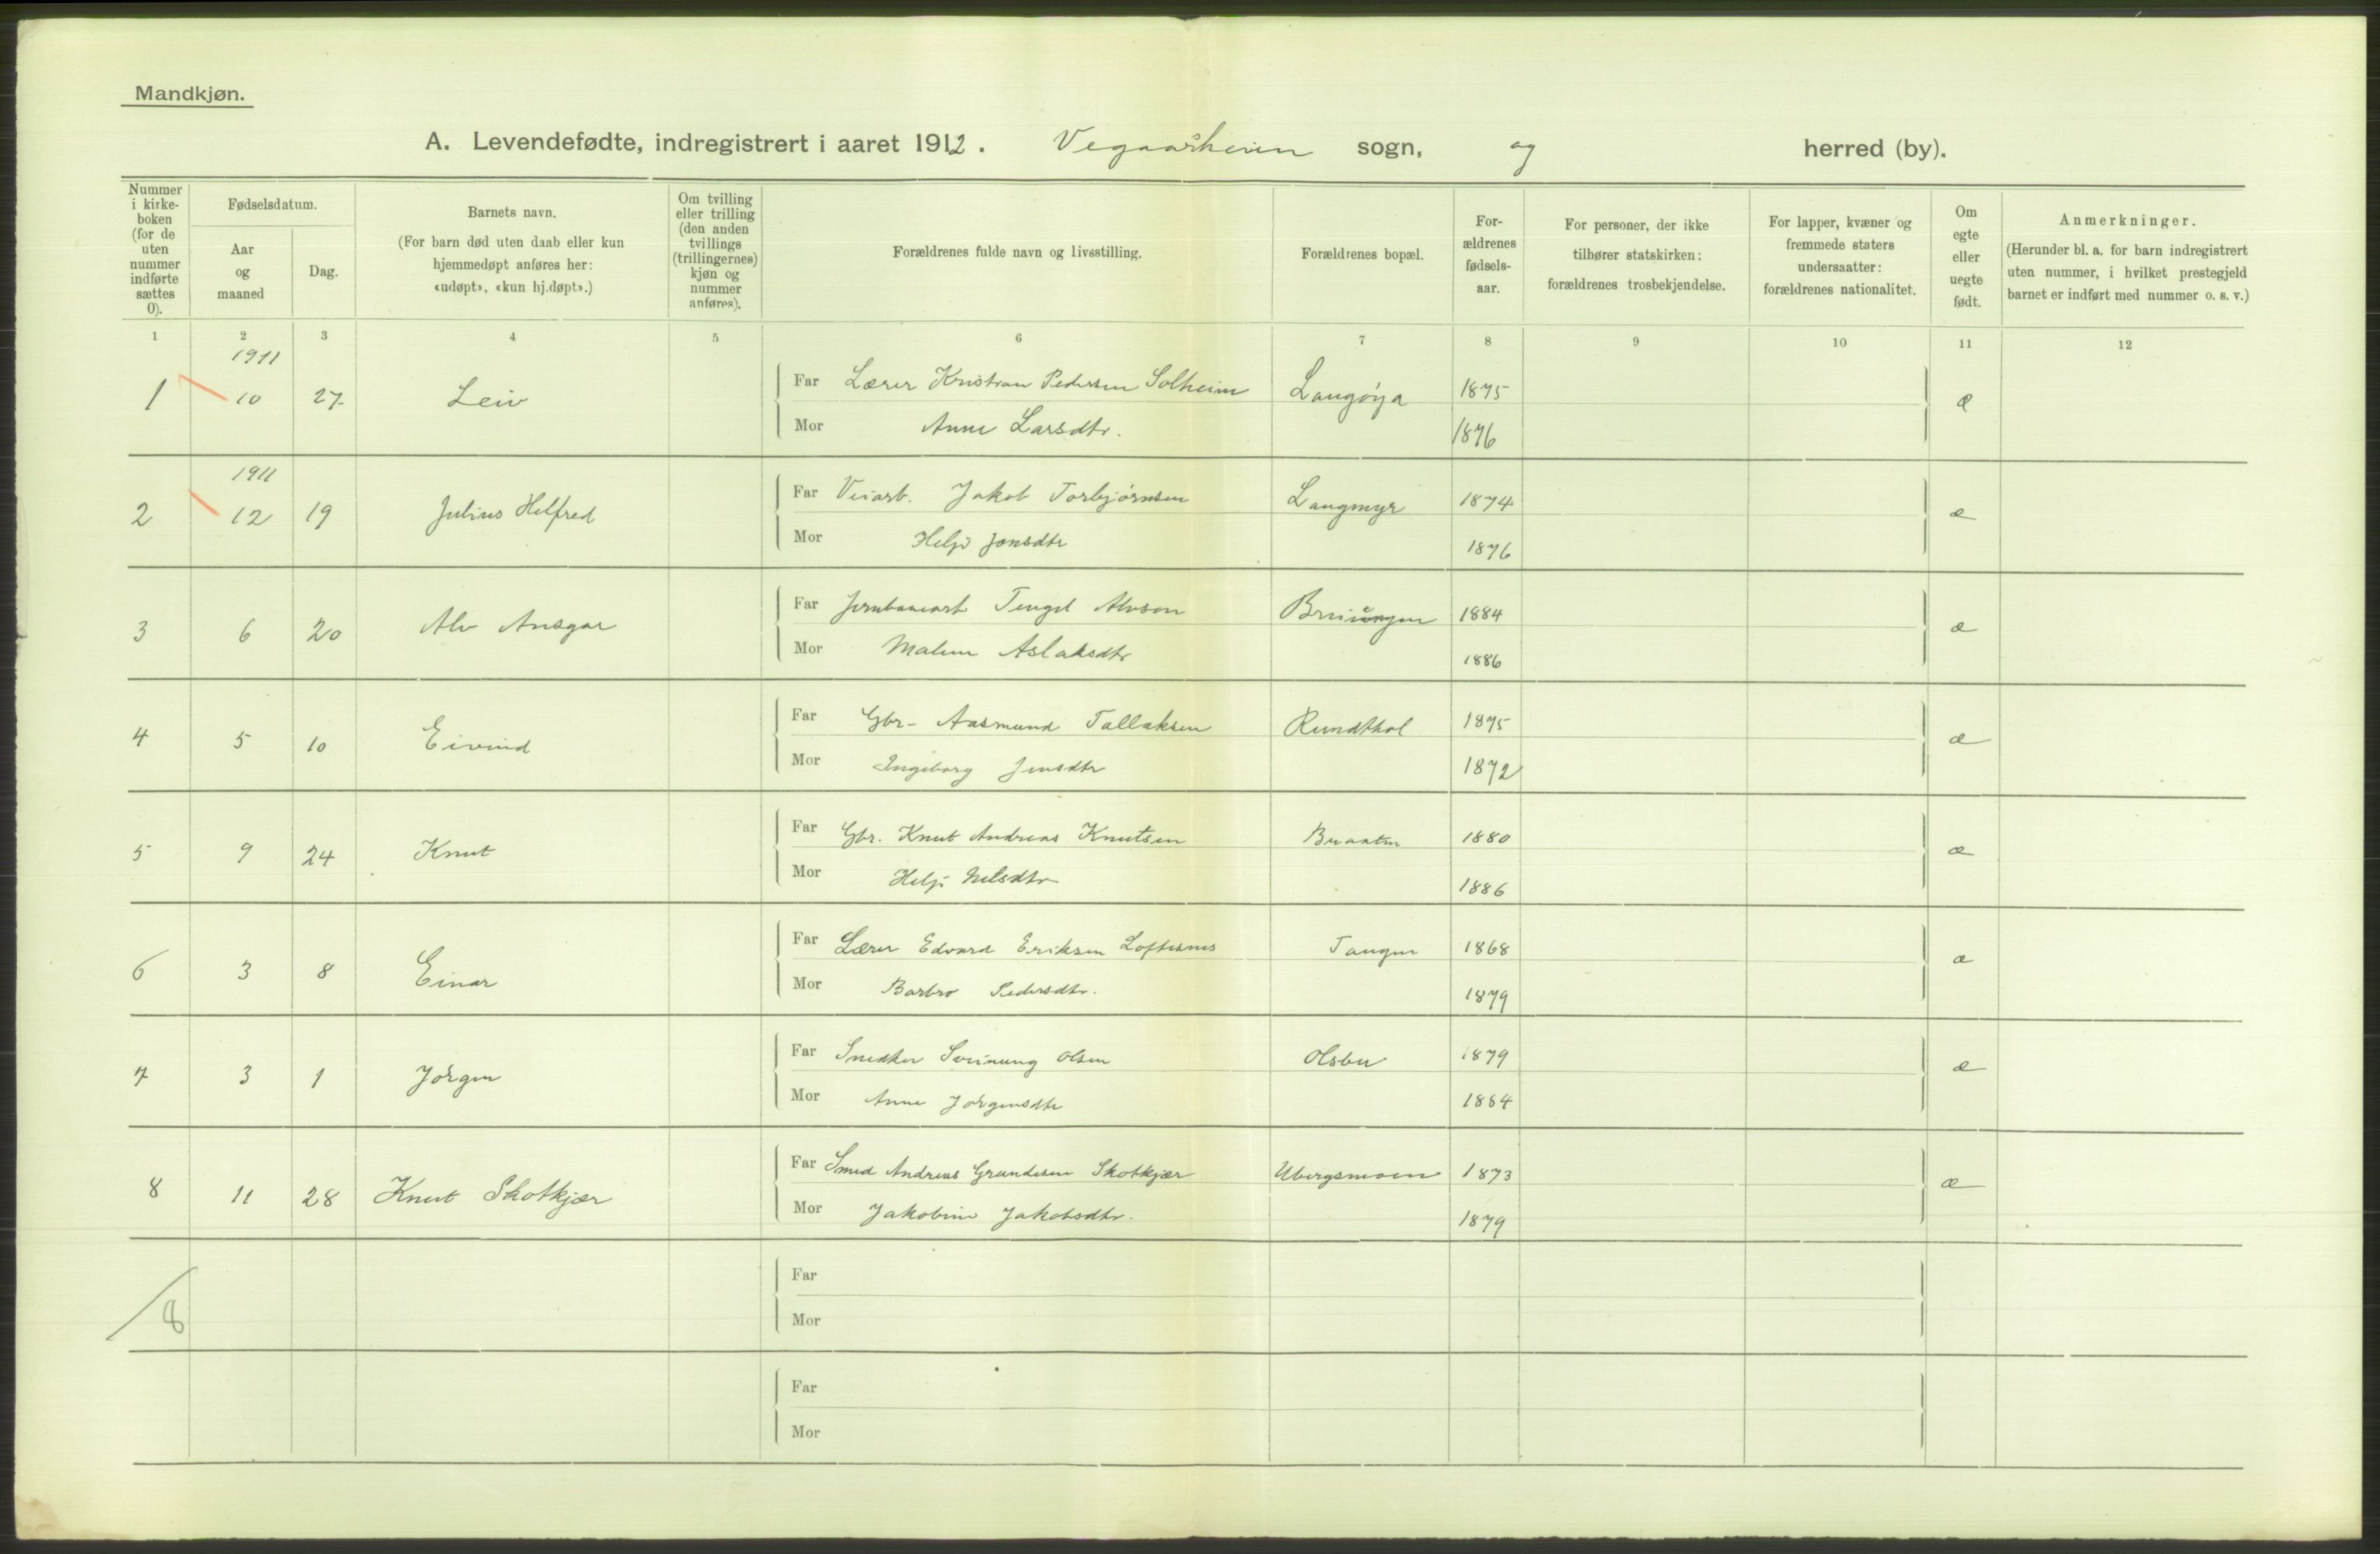 Mandkjøn.
A. Levendefødte, indregistrert i aaret 1912. Vegaarsheien sogn, og herred (by).
Nummer i kirke-boken (for de uten nummer indførte sættes 0).
Fødselsdatum.
Aar og maaned
Dag.
Barnets navn.
(For barn død uten daab eller kun hjemmedøpt anføres her: «udøpt», «kun hj.døpt».)
Om tvilling eller trilling (den anden tvillings (trillingernes) kjøn og nummer anføres).
Forældrenes fulde navn og livsstilling.
Forældrenes bopæl.
For-ældrenes fødsels-aar.
For personer, der ikke tilhører statskirken: forældrenes trosbekjendelse.
For lapper, kvæner og fremmede staters undersaatter: forældrenes nationalitet.
Om egte eller uegte født.
Anmerkninger.
(Herunder bl. a. for barn indregistrert uten nummer, i hvilket prestegjeld barnet er indført med nummer o. s. v.)
1 2 3 4 5 6 7 8 9 10 11 12
1911
1 10 27 Leiv Far Lærer Kristian Pedersen Solheim Langøya 1875 æ
Mor Anne Larsdtr. 1876
1911
2 12 19 Julius Helfred Far Veiarb. Jakob Torbjørnsen Langmyr 1874 æ
Mor Helje Jonsdtr 1876
3 6 20 Alv Ansgar Far Jernbanearb Tengel Alvson 1884 æ
Mor Malene Aslaksdtr 1886
4 5 10 Eivind Far Gbr- Aasmund Tallaksen Rundthol 1875 æ
Mor Ingeborg Jensdtr 1872
5 9 24 Knut Far Gbr. Knut Andreas Knutsen Braaten 1880 æ
Mor Helje Nilsdtr 1886
6 3 8 Einar Far Lærer Edvard Eriksen Loftesnes Tangen 1868 æ
Mor Barbro Pedersdtr. 1879
7 3 1 Jørgen Far Snedker Sveinung Olsen Olsbu 1879 æ
Mor Anne Jørgensdtr 1884
8 11 28 Knut Skotkjær Far Smed Andreas Grundesen Skotkjær Ubergsmoen 1873 æ
Mor Jakobine Jakobsdtr. 1879
Far
8
Mor
Far
Mor